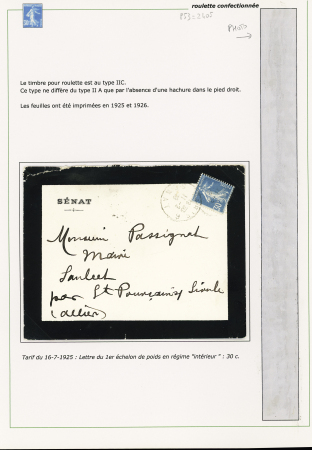 roulette confectionnée
PHOTO
Le timbre pour roulette est au type IIC.
Ce type ne diffère du type II A que par l'absence d'une hachure dans le pied droit.
Les feuilles ont été imprimées en 1925 et 1926.
SÉNAT
Monsieur Passignat
Maire
par St Pourçain s/ Sioule
(Allier)
Tarif du 16-7-1925 : Lettre du 1er échelon de poids en régime "intérieur " : 30 c.